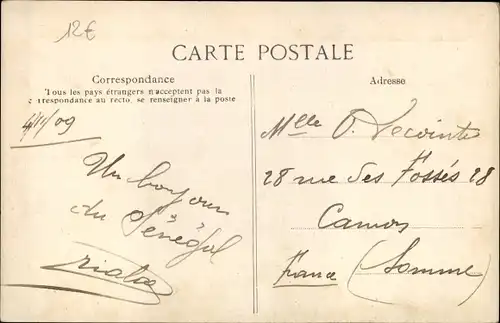 12€
CARTE POSTALE
Correspondance
Tous les pays étrangers n'acceptent pas la
correspondance au recto, se renseigner à la poste
Adresse
4/11/09
Un bonjour
du Sénégal
Mlle O. Lecointe
28 rue des Fossés 28
Camon
France (Somme)